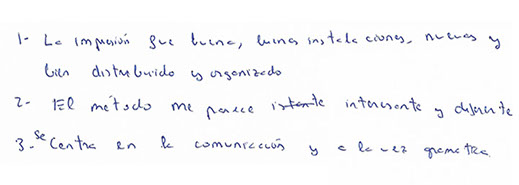 1- La impresión fue buena, buenas instalaciones, nuevas y
bien distribuido y organizado
2- El método me parece interesante y diferente
3- Se Centra en la comunicación y a la vez gramática